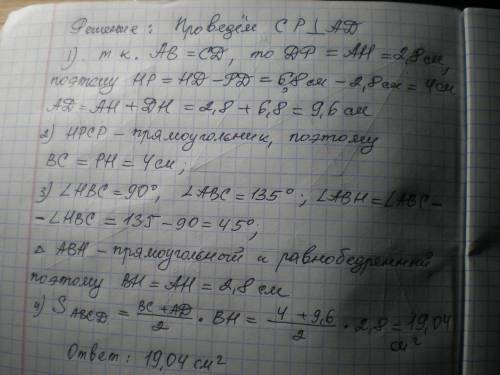 Решение: Проведём CP⊥AD
1) т.к. AB=CD, то DP=AH=2,8 см,
поэтому HP=HD-PD=6,8 см-2,8 см=4 см
AD=AH+DH=2,8+6,8=9,6 см
2) HPCP-прямоугольник, поэтому
BC=PH=4 см;
3) ∠HBC=90°, ∠ABC=135°; ∠ABH=∠ABC-
-∠HBC=135-90=45°;
△ ABH-прямоугольной и равнобедренный
поэтому BH=AH=2,8 см
4) S_ABCD = (BC+AD)/2 · BH = (4+9,6)/2 · 2,8=19,04
см²
Ответ: 19,04 см²